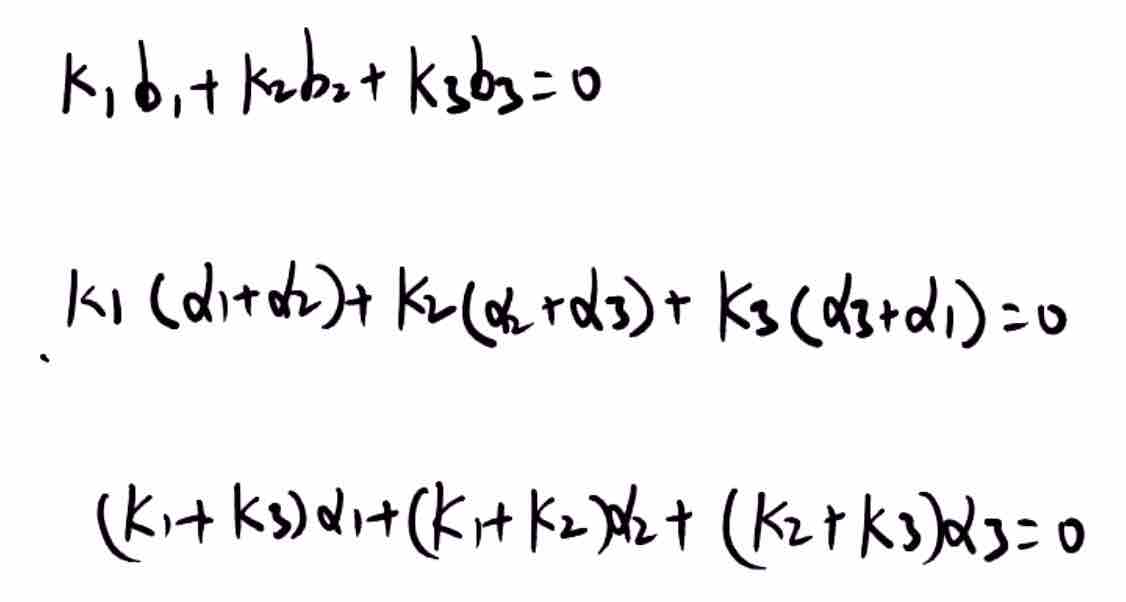 k₁b₁+k₂b₂+k₃b₃=0
k₁(α₁+α₂)+k₂(α₂+α₃)+k₃(α₃+α₁)=0
(k₁+k₃)α₁+(k₁+k₂)α₂+(k₂+k₃)α₃=0